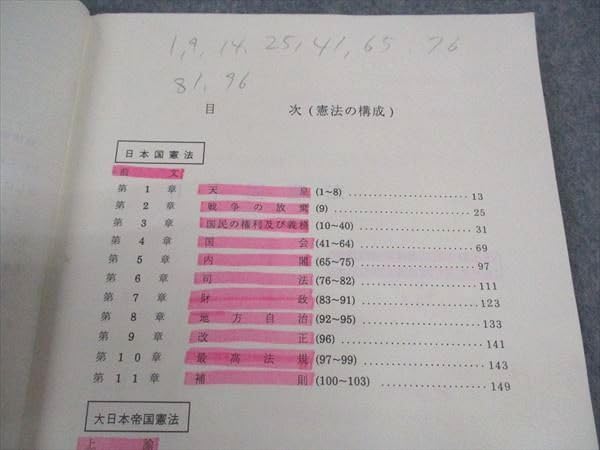 1, 9, 14, 25, 41, 65, 76
81, 96
目 次 (憲法の構成)
日本国憲法
前 文
第 1 章 天 皇 (1~8) 13
第 2 章 戦争の放棄 (9) 25
第 3 章 国民の権利及び義務 (10~40) 31
第 4 章 国 会 (41~64) 69
第 5 章 内 閣 (65~75) 97
第 6 章 司 法 (76~82) 111
第 7 章 財 政 (83~91) 123
第 8 章 地方自治 (92~95) 133
第 9 章 改 正 (96) 141
第 10 章 最高法規 (97~99) 143
第 11 章 補 則 (100~103) 149
大日本帝国憲法
上 諭